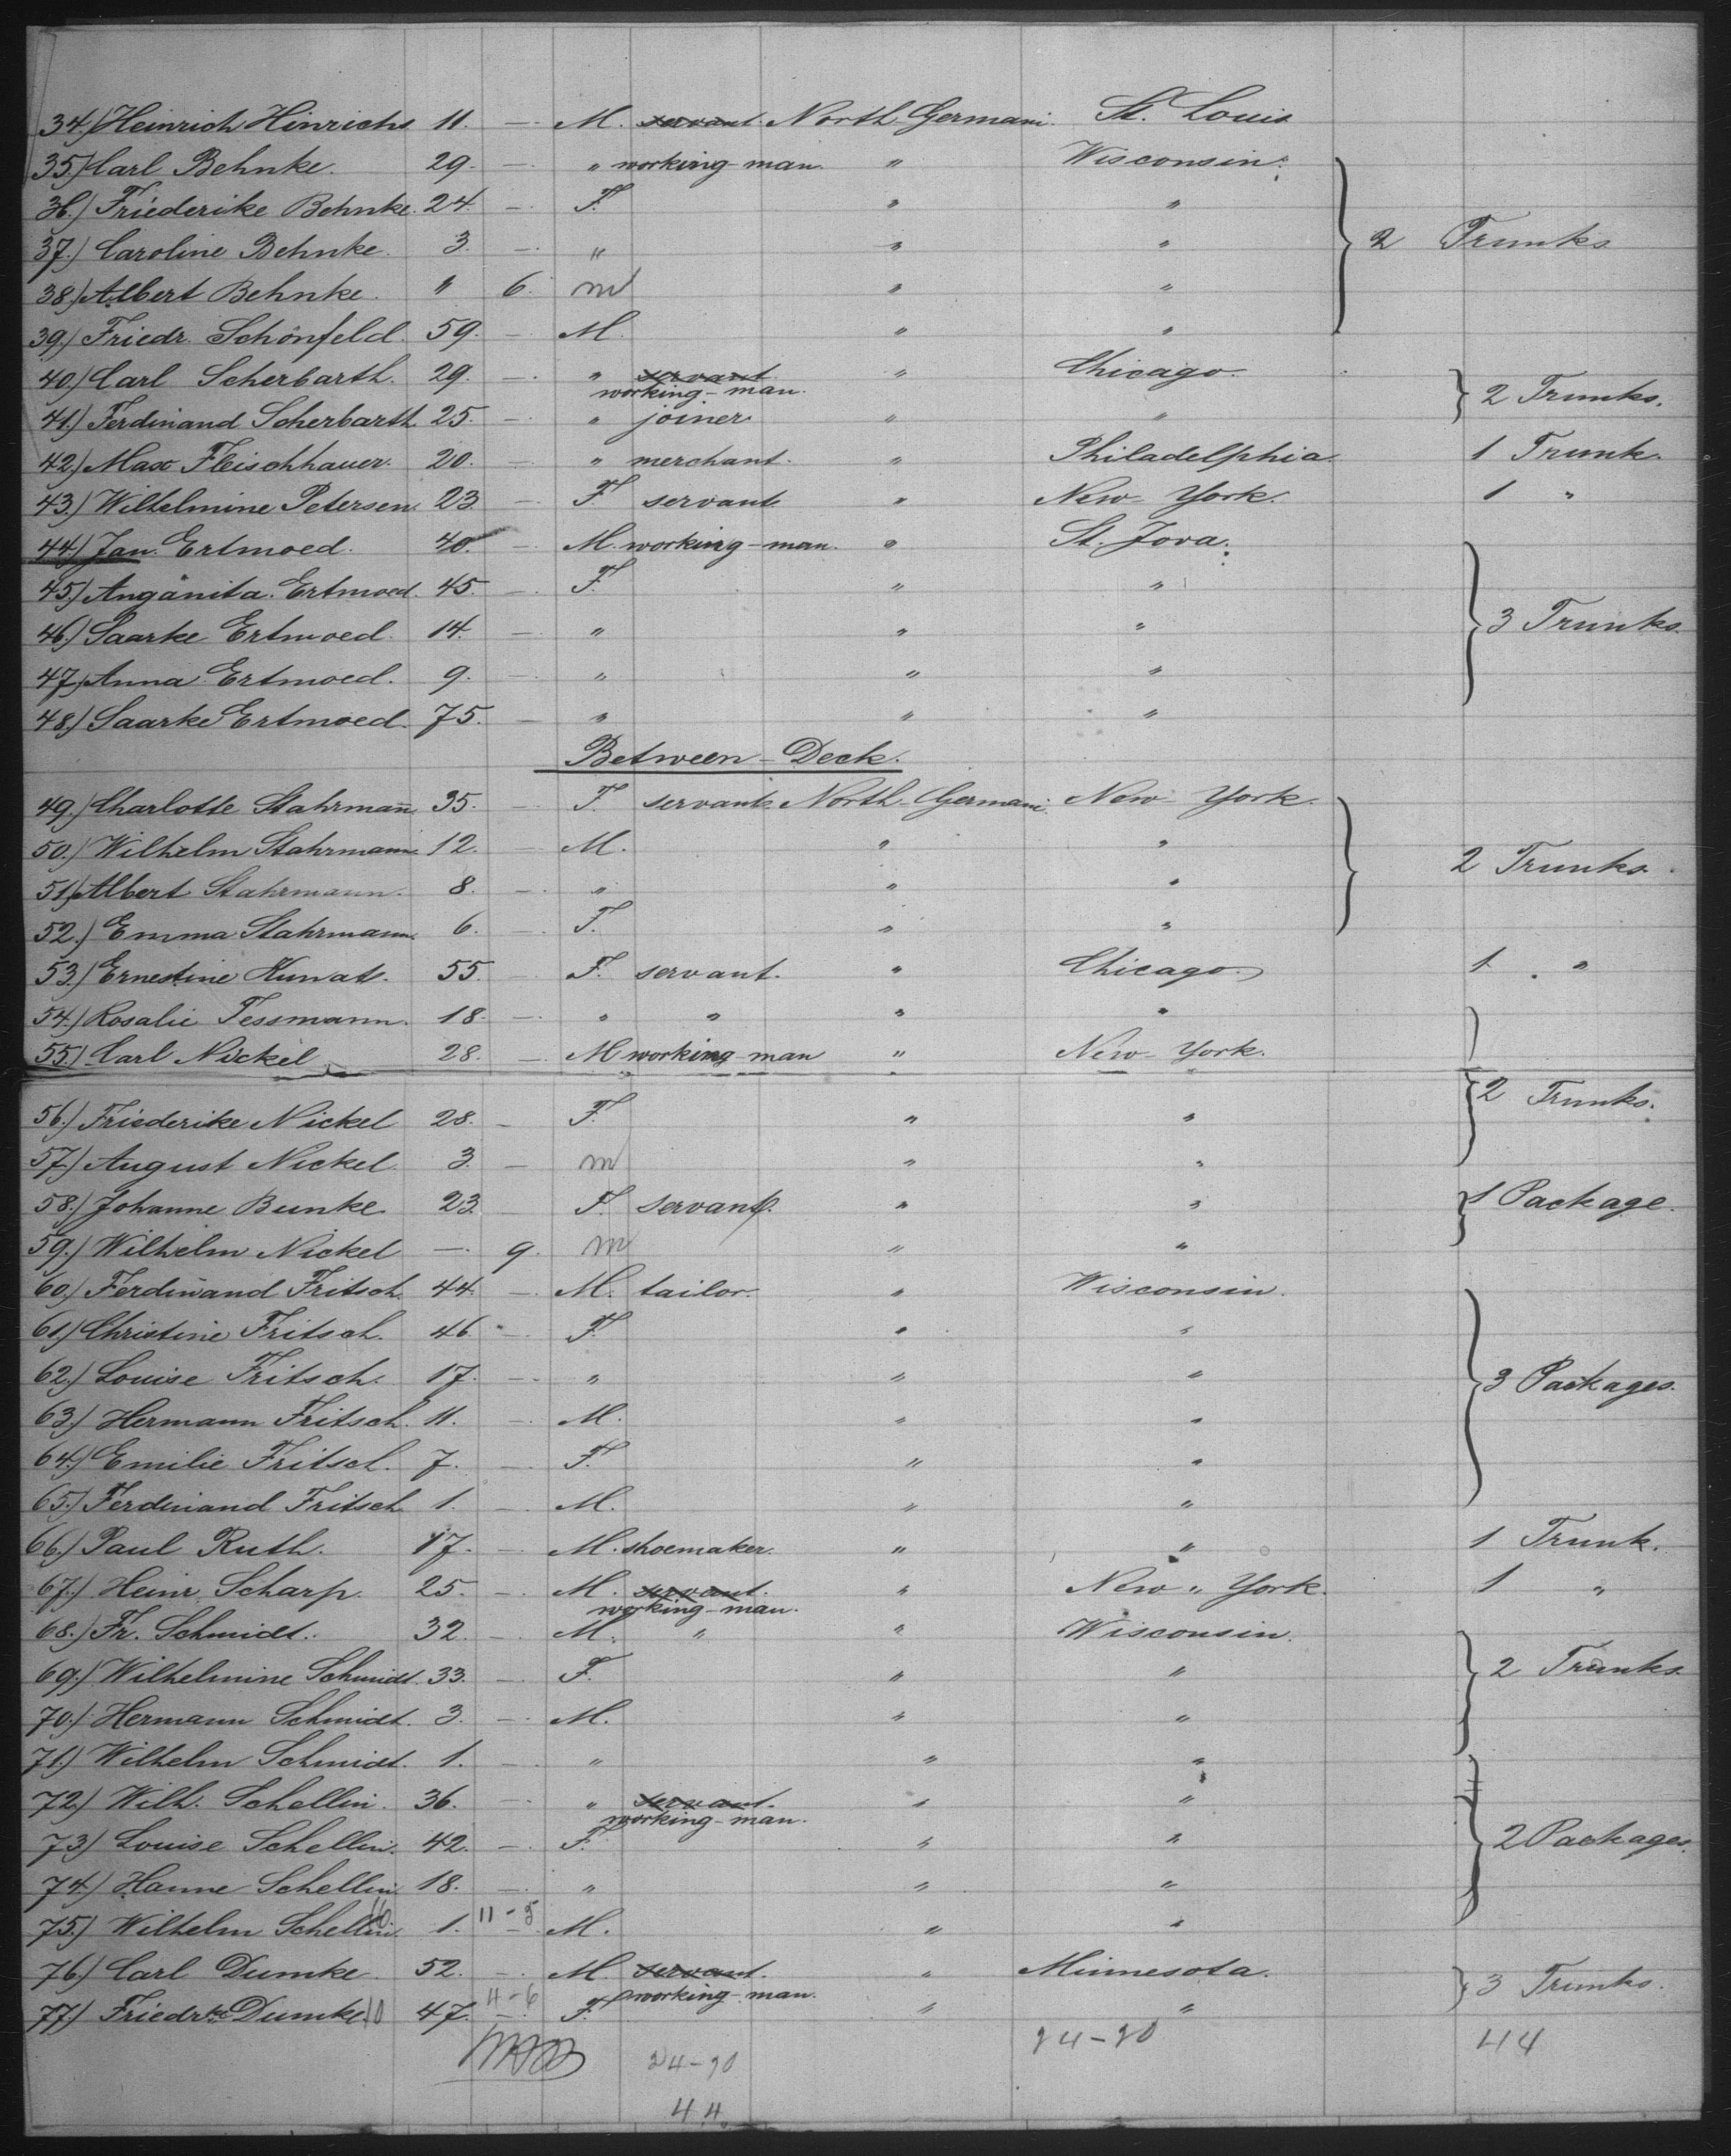 34.) Heinrich Hinrichs 11. — M. servant. North-Germani. St. Louis
35.) Carl Behnke. 29. — " working-man. " Wisconsin.
36.) Friederike Behnke. 24. — F. " "
37.) Caroline Behnke. 3. — " " " 2 Trunks
38.) Albert Behnke. " 6. m " "
39.) Friedr. Schönfeld. 59. — M. " "
40.) Carl Scherbarth. 29. — " servant " Chicago.
working-man. 2 Trunks.
41.) Ferdinand Scherbarth. 25. — " joiner " "
42.) Max Fleischhauer. 20. — " merchant. " Philadelphia. 1 Trunk.
43.) Wilhelmine Petersen. 23 — F. servant " New York. 1 "
44.) Jan. Ertmoed. 40. — M. working-man. " St. Jova.
45.) Anganita. Ertmoed. 45. — F. " "
46.) Saarke Ertmoed. 14. — " " " 3 Trunks.
47.) Anna Ertmoed. 9. — " " "
48.) Saarke Ertmoed. 75. — " " "
Between-Deck.
49.) Charlotte Stahrmañ. 35. — F. servant. North-Germani. New York.
50.) Wilhelm Stahrmann. 12. — M. " "
51.) Albert Stahrmann. 8. — " " " 2 Trunks.
52.) Emma Stahrmann. 6. — F. " "
53.) Ernestine Kunats. 55. — F. servant. " Chicago. 1 "
54.) Rosalie Tessmann. 18. — " " " "
55.) Carl Nickel 28. — M working-man " New York.
56.) Friederike Nickel 28. — F. " " 2 Trunks.
57.) August Nickel. 3. — m " "
58.) Johanne Bunke. 23. F. servant. " " 1 Package.
59.) Wilhelm Nickel — 9. m " "
60.) Ferdinand Fritsch. 44. — M. tailor. " Wisconsin.
61.) Christine Fritsch. 46. — F. " "
62.) Louise Fritsch. 17. — " " " 3 Packages.
63.) Hermann Fritsch. 11. — M. " "
64.) Emilie Fritsch. 7. — F. " "
65.) Ferdinand Fritsch. 1. — M. " "
66.) Paul Ruth. 17. — M. shoemaker. " " 1 Trunk.
67.) Heinr. Scharp. 25. — M. servant. " New York. 1 "
working-man.
68.) Fr. Schmidt. 32. — M. " " Wisconsin.
69.) Wilhelmine Schmidt. 33. — F. " " 2 Trunks.
70.) Hermann Schmidt. 3. — M. " "
71.) Wilhelm Schmidt. 1. — " " "
72.) Wilh. Schellin. 36. — " servant. " "
working-man.
73.) Louise Schellin. 42. — F. " " 2 Packages.
74.) Hanne Schellin. 18. — " " "
75.) Wilhelm Schellin. 10 1. 11-5 M. " "
76.) Carl Dumke. 52. — M. servant. " Minnesota.
working-man. 3 Trunks.
77.) Friedrke Dumke. 10 47. 11-6 F. " "
24-20 44
24-20
44